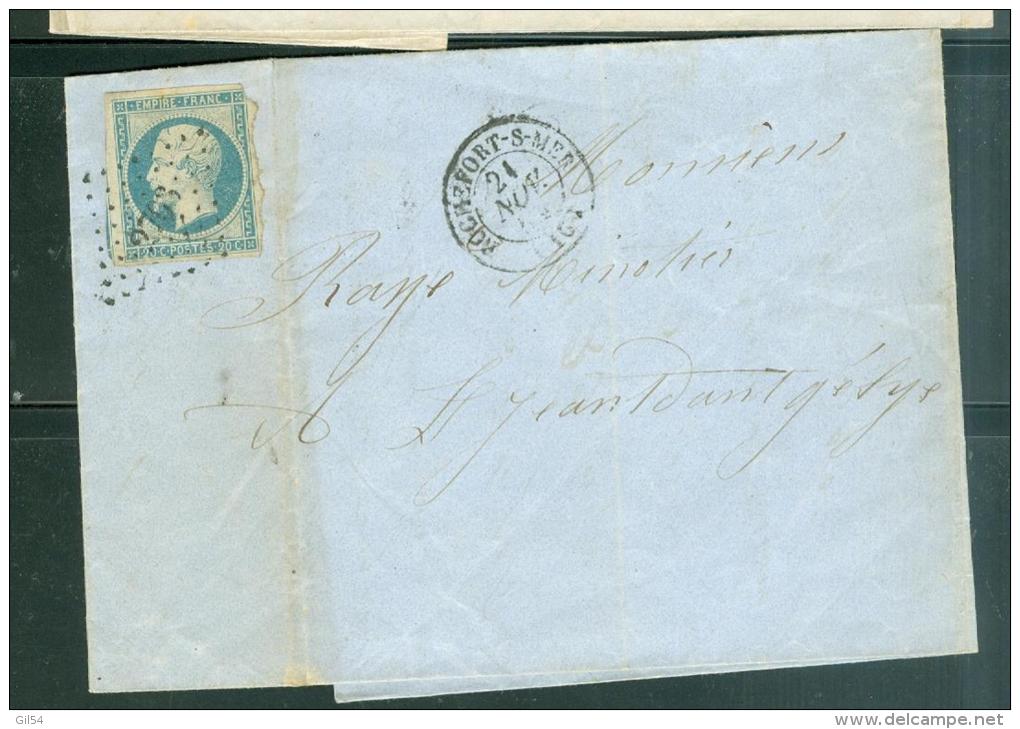 EMPIRE · FRANC ·
20 C · POSTES · 20 C
ROCHEFORT-S-MER
21
NOV.
(16)
Monsieur
Raye Minotier
A St Jean Dant gélye
Gil54
www.delcampe.net